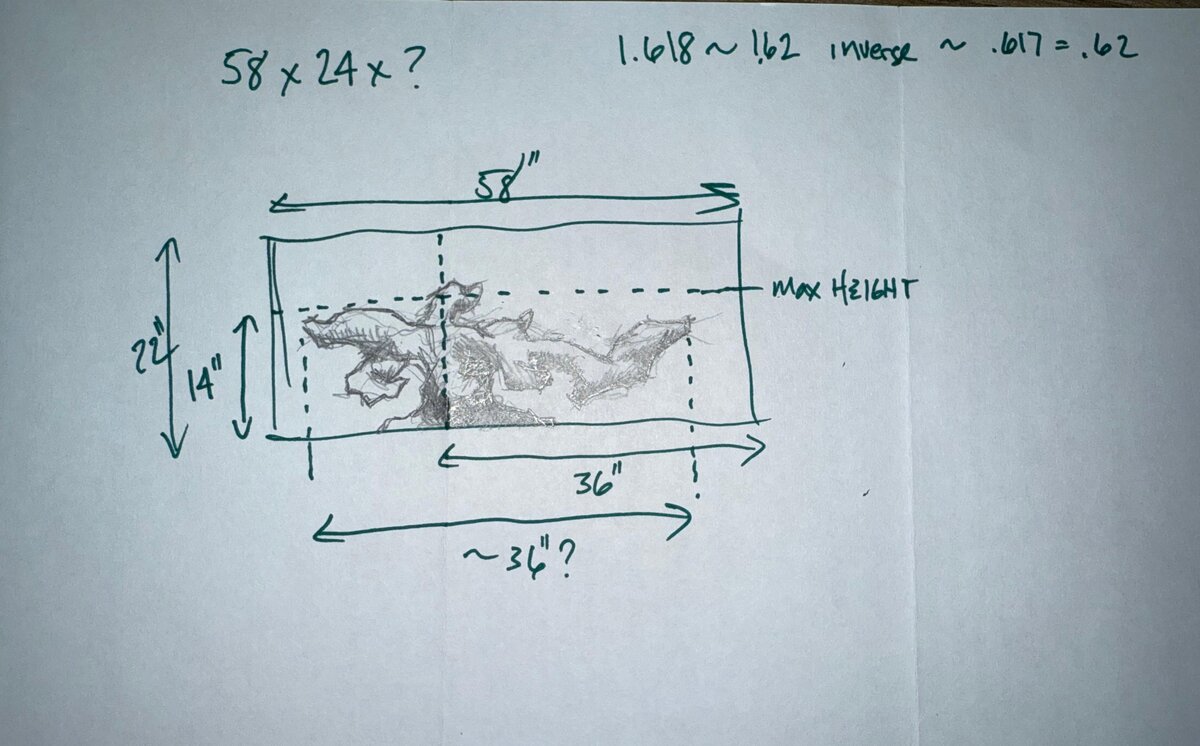 58 x 24 x ?
1.618 ~ 1.62 inverse ~ .617 = .62
58"
MAX HEIGHT
22"
14"
36"
~36"?